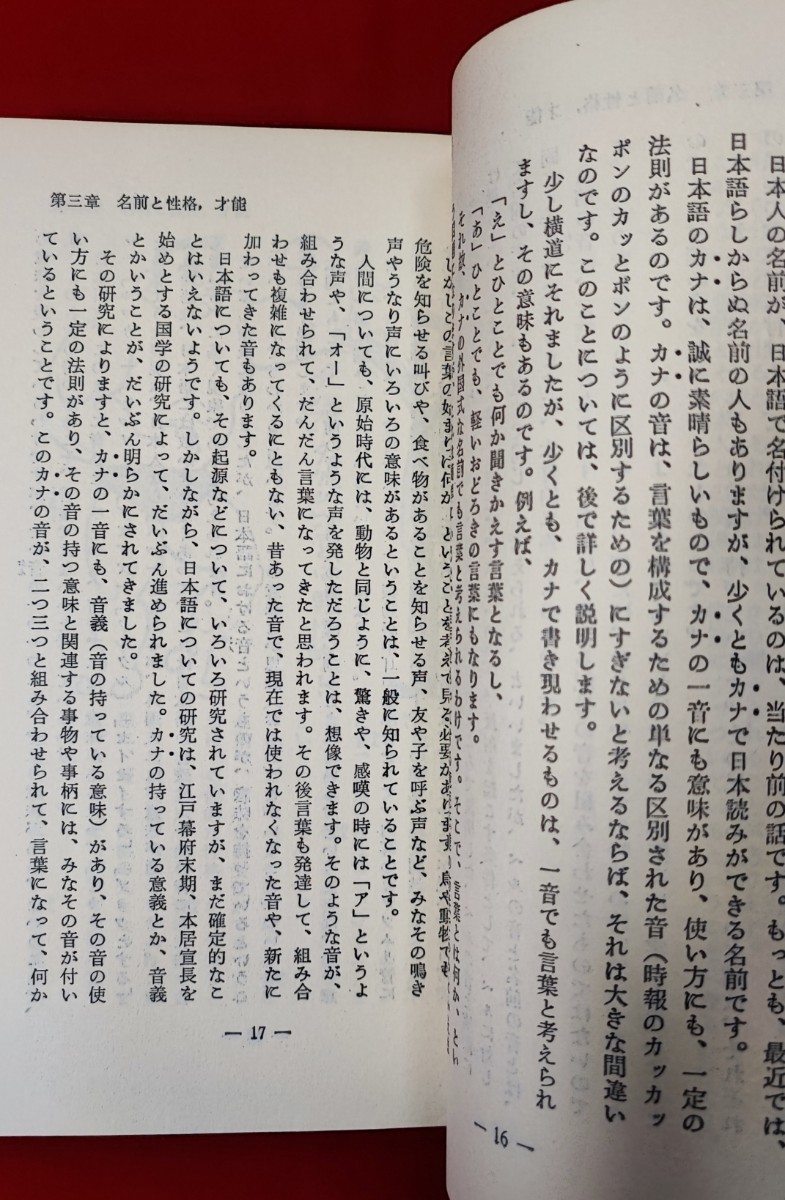 日本人の名前が、日本語で名付けられているのは、当たり前の話です。もっとも、最近では、
日本語らしからぬ名前の人もありますが、少くともカナで日本読みができる名前です。
日本語のカナは、誠に素晴らしいもので、カナの一音にも意味があり、使い方にも、一定の
法則があるのです。カナの音は、言葉を構成するための単なる区別された音（時報のカッカッ
ポンのカッとポンのように区別するための）にすぎないと考えるならば、それは大きな間違い
なのです。このことについては、後で詳しく説明します。
少し横道にそれましたが、少くとも、カナで書き現わせるものは、一音でも言葉と考えられ
ますし、その意味もあるのです。例えば、
「え」とひとことでも何か聞きかえす言葉となるし、
「あ」ひとことでも、軽いおどろきの言葉にもなります。
それ故、カナの外国式な名前でも言葉と考えられるわけです。そこで、言葉とは何か、とい
— 16 —
第三章 名前と性格，才能
しかしこの言葉の始まりは何か、ということを考えて見る必要があります。鳥や動物でも、
危険を知らせる叫びや、食べ物があることを知らせる声、友や子を呼ぶ声など、みなその鳴き
声やうなり声にいろいろの意味があるということは、一般に知られていることです。
人間についても、原始時代には、動物と同じように、驚きや、感嘆の時には「ア」というよ
うな声や、「オー」というような声を発しただろうことは、想像できます。そのような音が、
組み合わせられて、だんだん言葉になってきたと思われます。その後言葉も発達して、組み合
わせも複雑になってくるにともない、昔あった音で、現在では使われなくなった音や、新たに
加わってきた音もあります。
日本語についても、その起源などについて、いろいろ研究されていますが、まだ確定的なこ
とはいえないようです。しかしながら、日本語についての研究は、江戸幕府末期、本居宣長を
始めとする国学の研究によって、だいぶん進められました。カナの持っている意義とか、音義
とかいうことが、だいぶん明らかにされてきました。
その研究によりますと、カナの一音にも、音義（音の持っている意味）があり、その音の使
い方にも一定の法則があり、その音の持つ意味と関連する事物や事柄には、みなその音が付い
ているということです。このカナの音が、二つ三つと組み合わせられて、言葉になって、何か
— 17 —